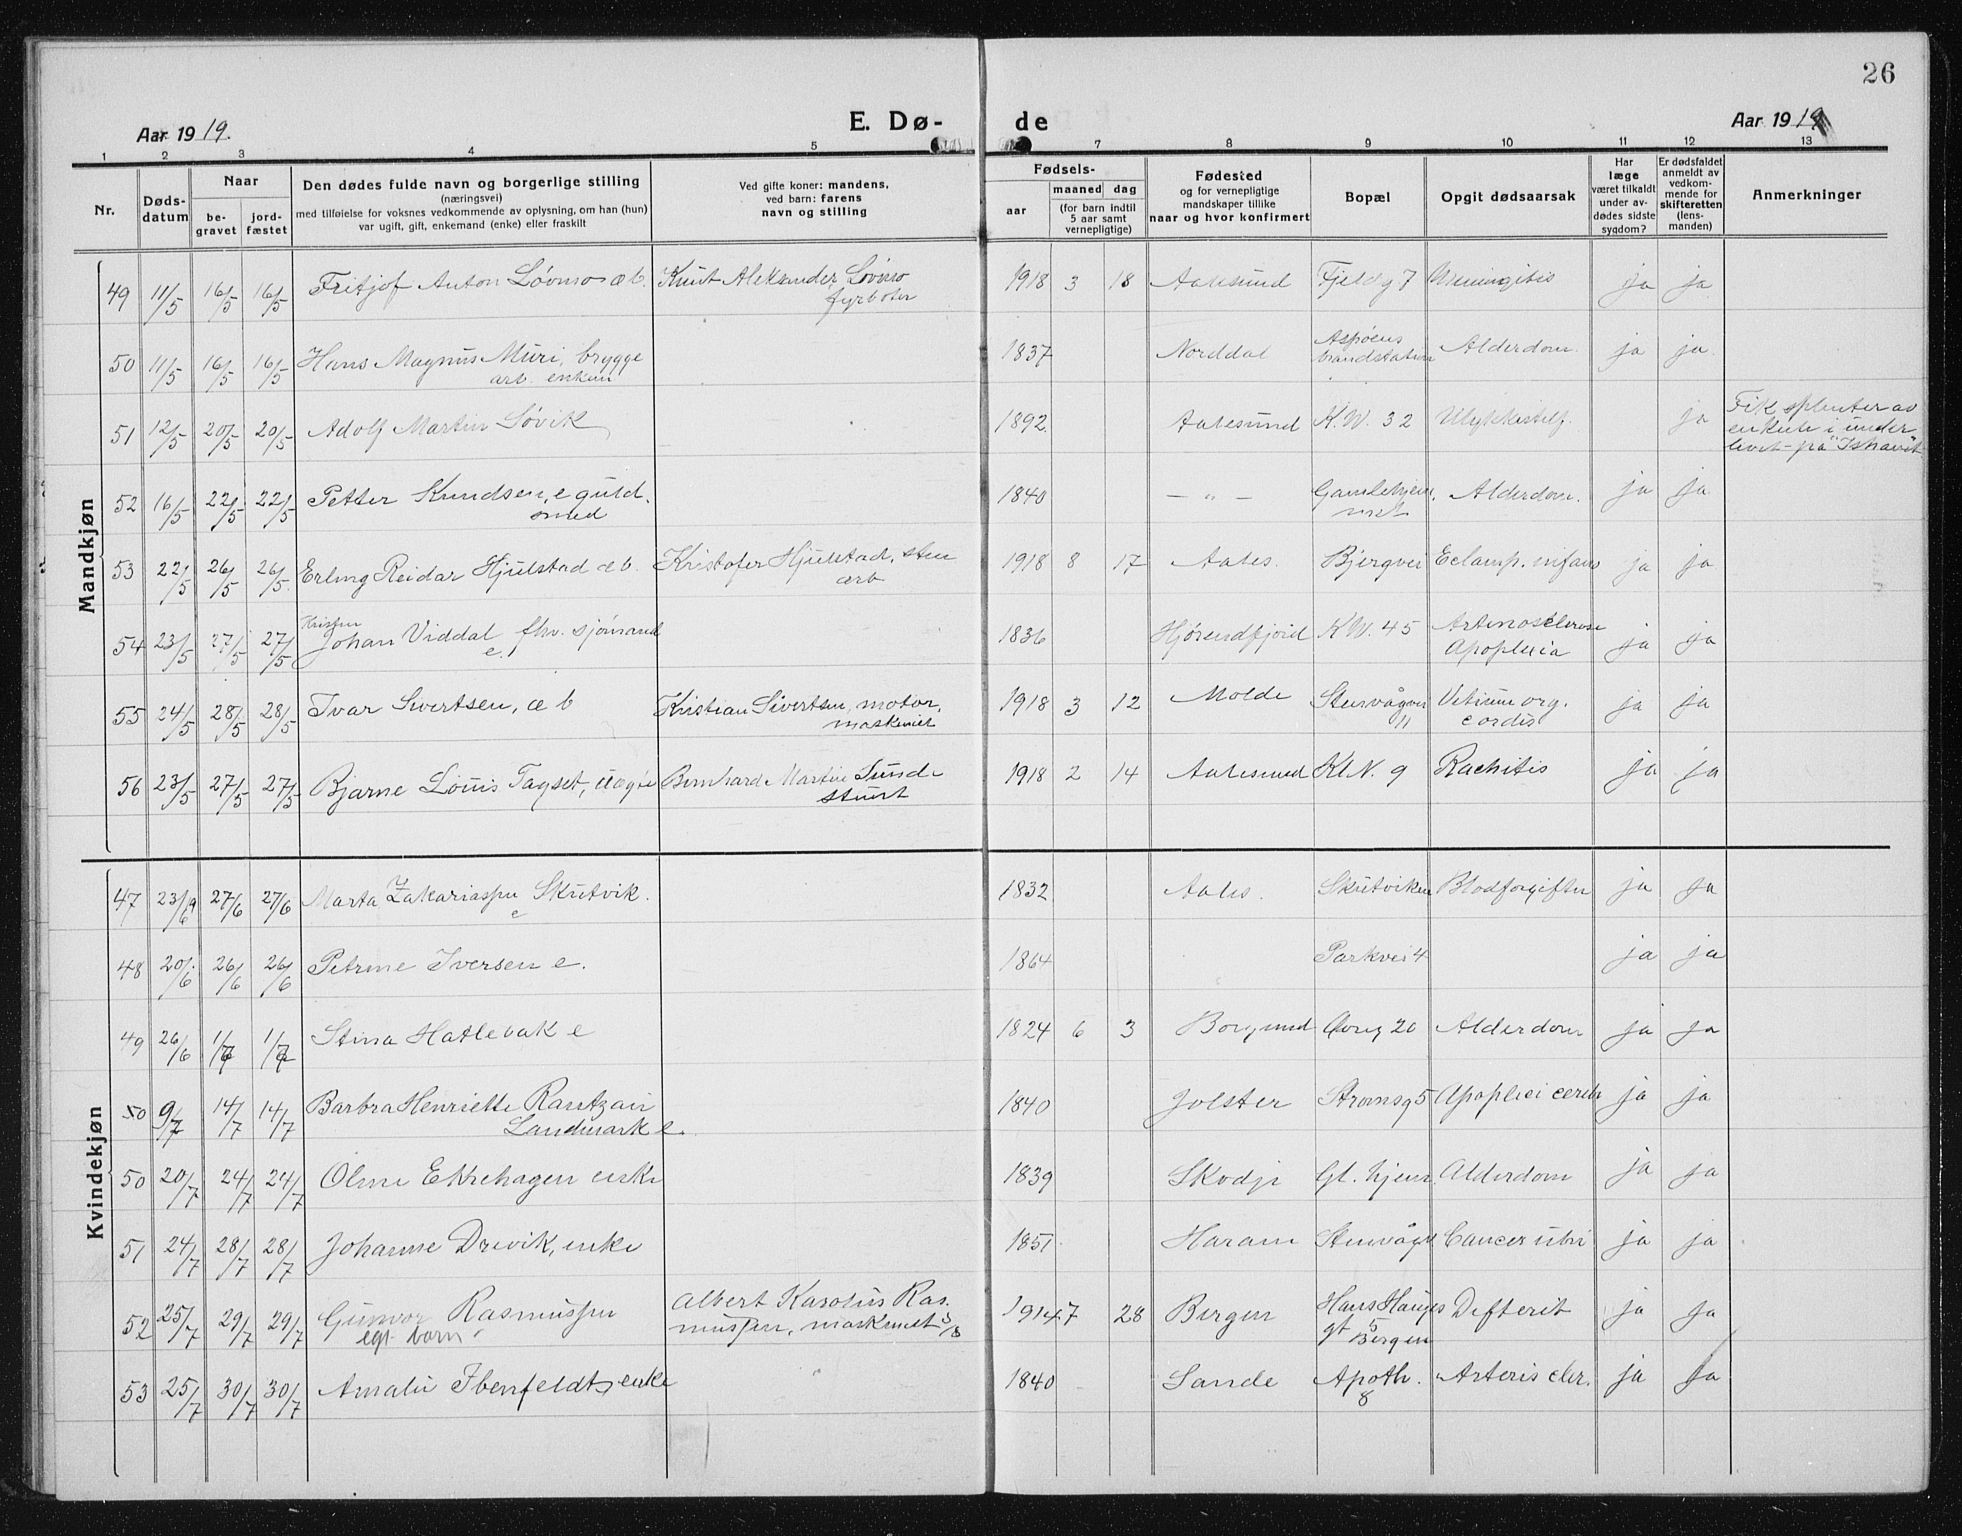 26
Aar 1919.
E. Dø-
de
Aar 1919
1 2 3 4 5 7 8 9 10 11 12 13
Nr.
Døds-
datum
Naar
be-
gravet
jord-
fæstet
Den dødes fulde navn og borgerlige stilling
(næringsvei)
med tilføielse for voksnes vedkommende av oplysning, om han (hun)
var ugift, gift, enkemand (enke) eller fraskilt
Ved gifte koner: mandens,
ved barn: farens
navn og stilling
Fødsels-
aar
maaned
dag
(for barn indtil
5 aar samt
vernepligtige)
Fødested
og for vernepligtige
mandskaper tillike
naar og hvor konfirmert
Bopæl
Opgit dødsaarsak
Har
læge
været tilkaldt
under av-
dødes sidste
sygdom?
Er dødsfaldet
anmeldt av
vedkom-
mende for
skifteretten
(lens-
manden)
Anmerkninger
Mandkjøn
49 11/5 16/5 16/5 Fritjof Anton Løvnso æ b. Knut Aleksander Løvnso 1918 3 18 Aalesund Fjeldg 7 Meningitis ja ja
fyrbøter
50 11/5 16/5 16/5 Hans Magnus Muri, brygge 1837 Norddal Aspøens Alderdom. ja ja.
arb. enkem brandstation
51 12/5 20/5 20/5 Adolf Martin Løvik 1892 Aalesund K.W. 32 Ulykkestilf. ja Fik splinter av
en kule i under
livet på "Ishavet"
52 16/5 22/5 22/5 Petter Knudsen, e guld. 1840 — „ — Gamlehjem. Alderdom. ja ja
smed met
53 22/5 26/5 26/5 Erling Reidar Hjulstad æ b. Kristofer Hjulstad, sten 1918 8 17 Aales. Bjergvei Eclamp. infans ja ja
arb
54 23/5 27/5 27/5 Johan Viddal fhv. sjømand 1836 Hjørendfjord K.W. 45 ja ja
e. Apoplexia
55 24/5 28/5 28/5 Ivar Sivertsen, æ b Kristian Sivertsen, motor, 1918 3 12 Molde Stenvågvei Vitium org. ja ja
maskenist 11 cordis
56 23/5 27/5 27/5 Bjarne Louis Tagset, uægte Bernhard Martin Sunde 1918 2 14 Aalesund Kl N. 9 Rachitis ja ja
stuert
Kvindekjøn
47 23/6 27/6 27/6 Marta Zakariassen Skutvik. 1832 Aales. Skutviken Blodforgiftn ja ja
e
48 20/6 26/6 26/6 Petrine Iversen e. 1864 Parkvei 4 ja ja
49 26/6 1/7 1/7 Stina Hatlebak e 1824 6 3 Borgund 20 Alderdom ja ja
50 9/7 14/7 14/7 Barbra Henriette Rantzau 1840 Jolster Stromsg 5 Apoplexi cereb ja ja
Landmark e.
50 20/7 24/7 24/7 Oline Ekrehagen enke 1839 Skodje Gl. hjem. Alderdom ja ja
51 24/7 28/7 28/7 Johanne Drevik, enke 1851 Haram Stenvågv Cancer uteri ja ja
52 25/7 29/7 29/7 Gunvor Rasmussen Albert Karolus Ras. 1914 7 28 Bergen Hans Hauges Difterit ja ja
egt barn mussen, maskinist gt 5
Bergen
53 25/7 30/7 30/7 Amalie Ibenfeldt, enke 1840 Sande Apoth. Arteriscler. ja ja
8